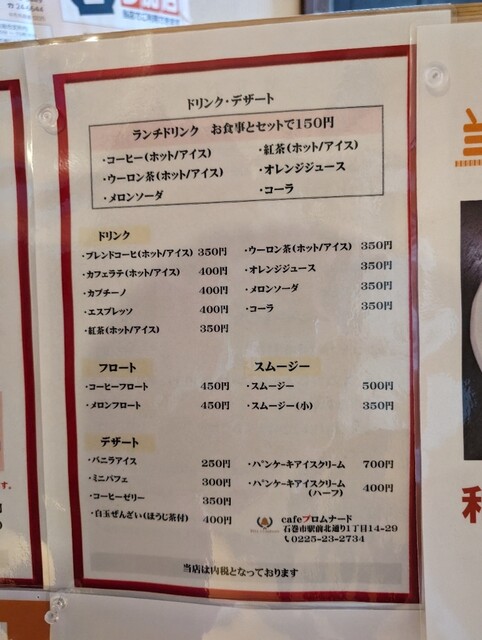 ドリンク・デザート
ランチドリンク お食事とセットで150円
・コーヒー(ホット/アイス) ・紅茶(ホット/アイス)
・ウーロン茶(ホット/アイス) ・オレンジジュース
・メロンソーダ ・コーラ
ドリンク
・ブレンドコーヒ(ホット/アイス) 350円 ・ウーロン茶(ホット/アイス) 350円
・カフェラテ(ホット/アイス) 400円 ・オレンジジュース 350円
・カプチーノ 400円 ・メロンソーダ 350円
・エスプレッソ 400円 ・コーラ 350円
・紅茶(ホット/アイス) 350円
フロート スムージー
・コーヒーフロート 450円 ・スムージー 500円
・メロンフロート 450円 ・スムージー(小) 350円
デザート
・バニラアイス 250円 ・パンケーキアイスクリーム 700円
・ミニパフェ 300円 ・パンケーキアイスクリーム 400円
(ハーフ)
・コーヒーゼリー 350円
・白玉ぜんざい(ほうじ茶付) 400円
cafeプロムナード
石巻市駅前北通り1丁目14-29
0225-23-2734
当店は内税となっております